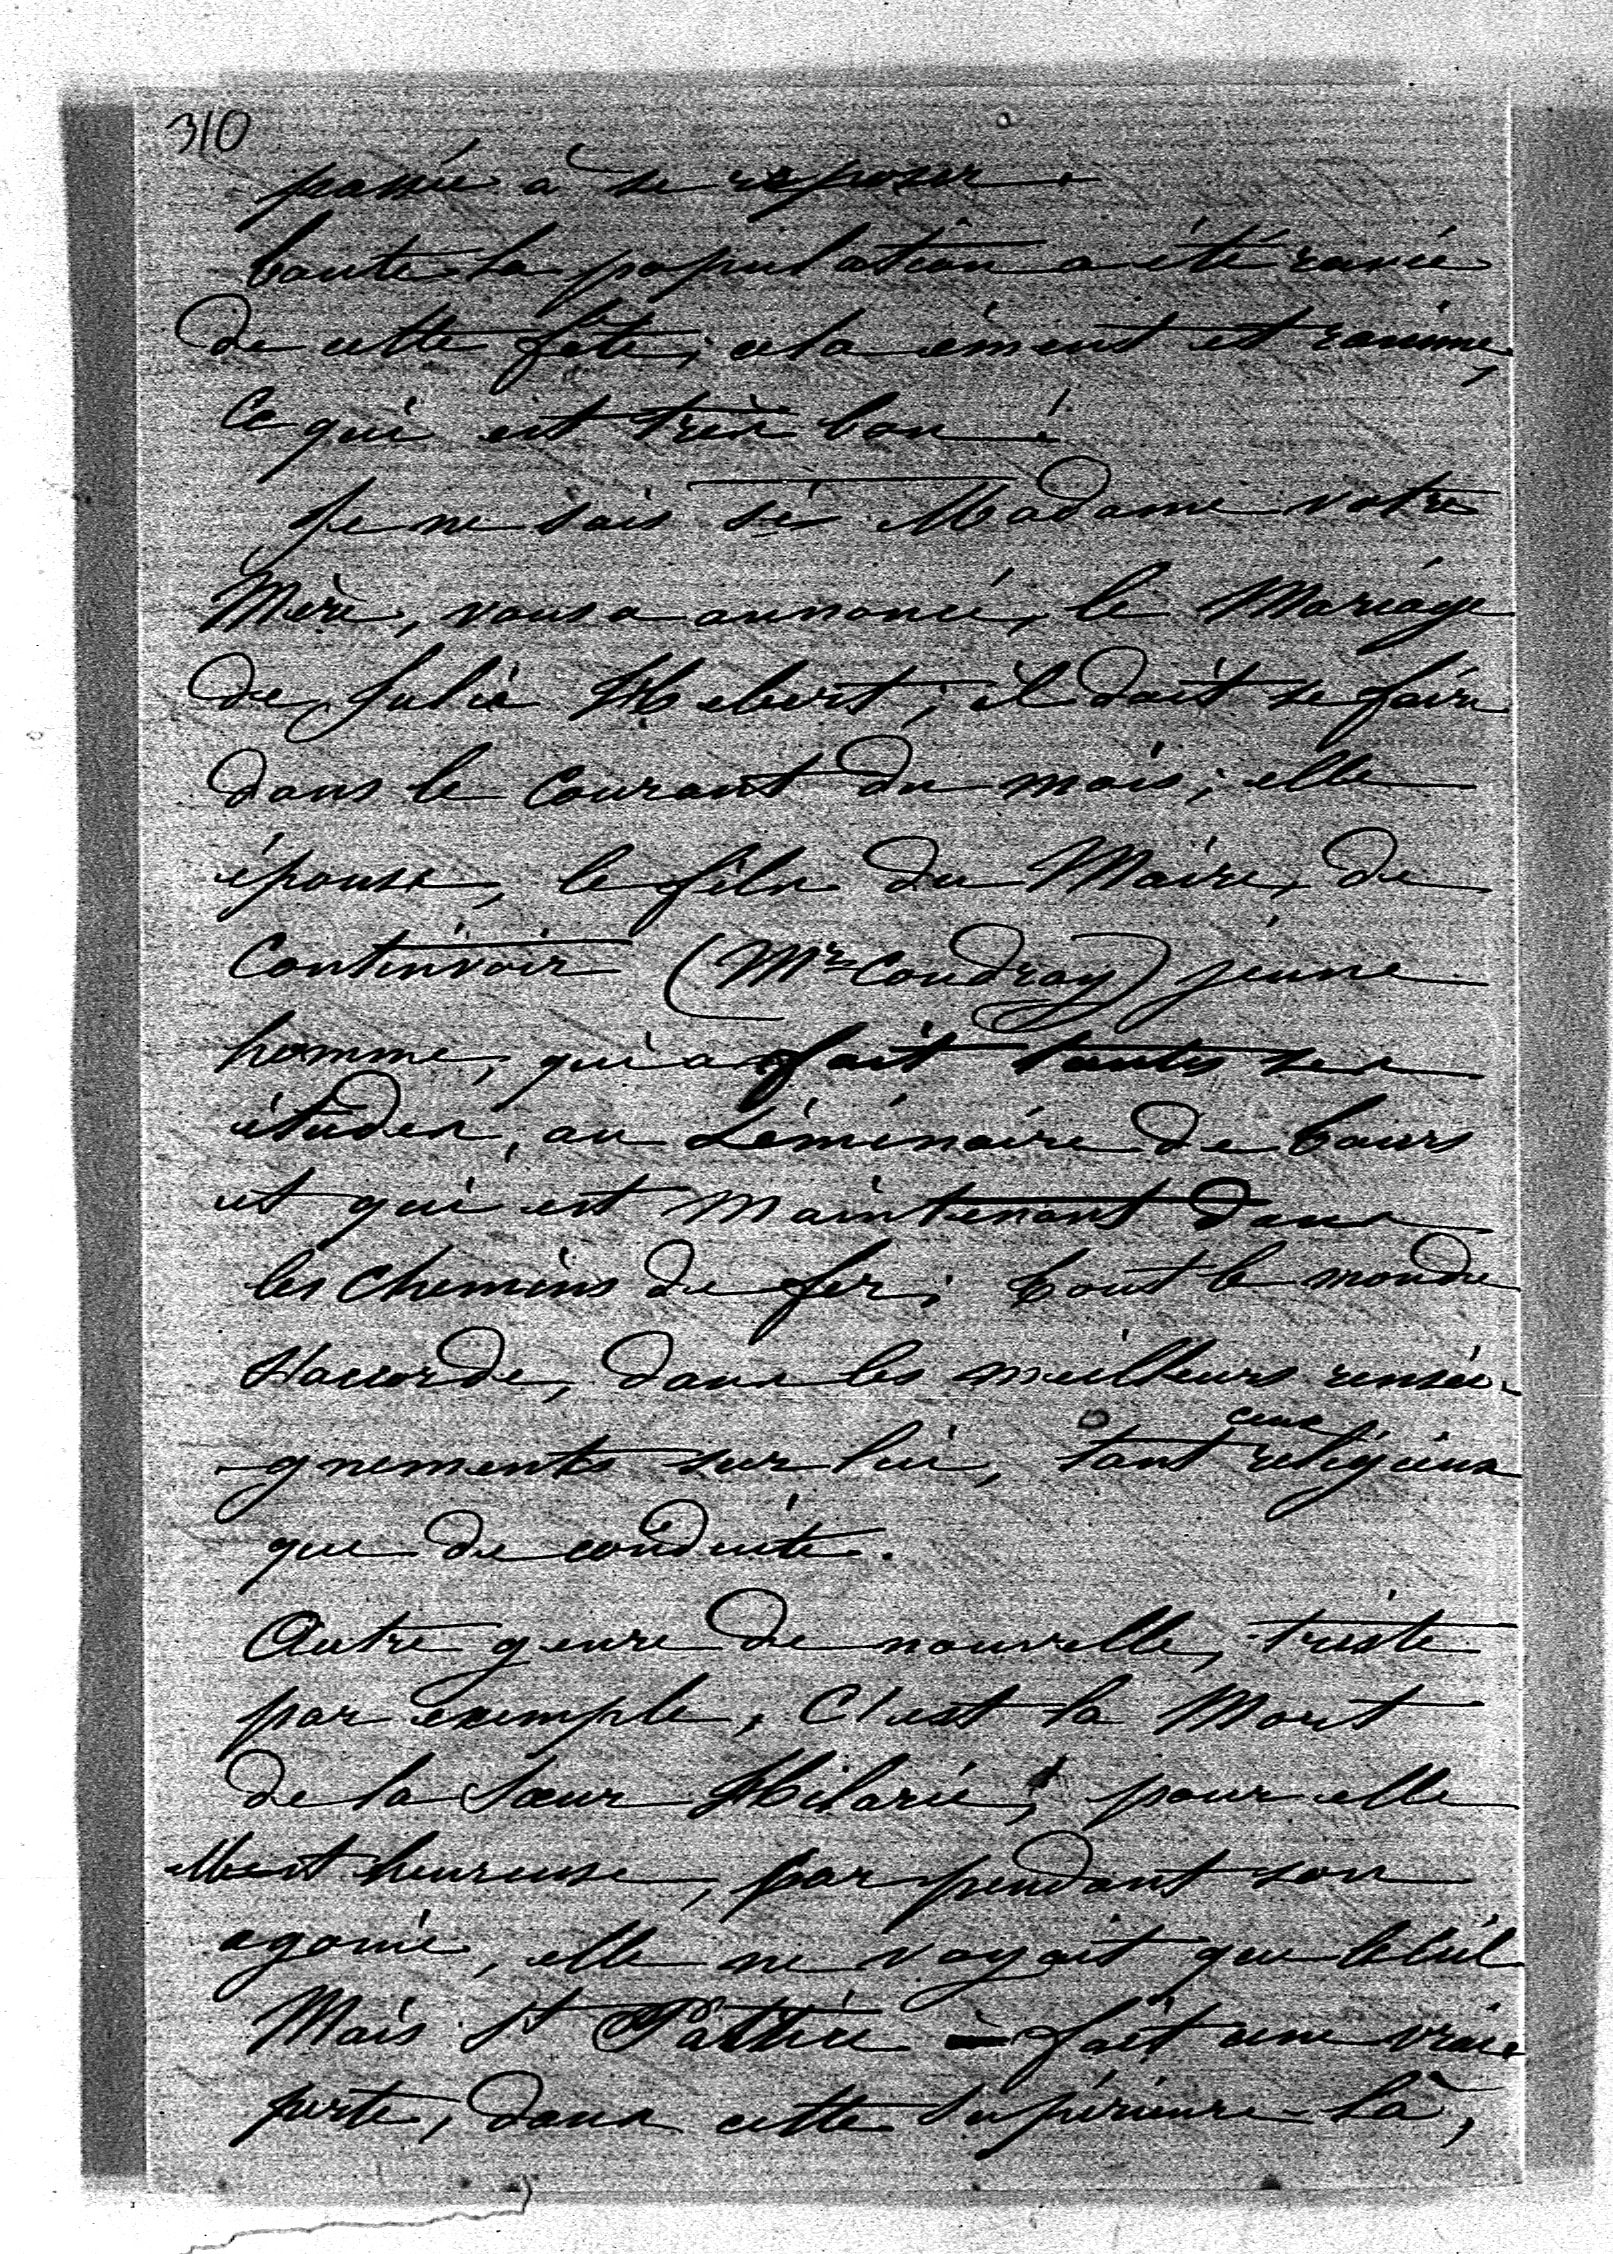 310
passée à se reposer.
Toute la population a été ravie
de cette fête; cela émeut et ranime,
Ce qui est très bon!
Je ne sais si Madame votre
Mère, vous a annoncé, le Mariage
de Julie Hebert; il doit se faire
dans le Courant du mois; elle
épouse, le fils du Maire, de
Continvoir (Mr Coudray) jeune
homme, qui a fait toutes ses
études, au Séminaire de Tours
et qui est Maintenant dans
les Chemins de fer; tout le monde
s'accorde, dans les meilleurs rensei-
-gnements sur lui, tant ceux religieux
que de conduite.
Autre genre de nouvelle, triste
par exemple, C'est la Mort
de la Sœur Hilarie; pour elle
elle est heureuse, car pendant son
agonie, elle ne voyait que le Ciel
Mais St Patrice a fait une vraie
perte, dans cette Supérieure-là,